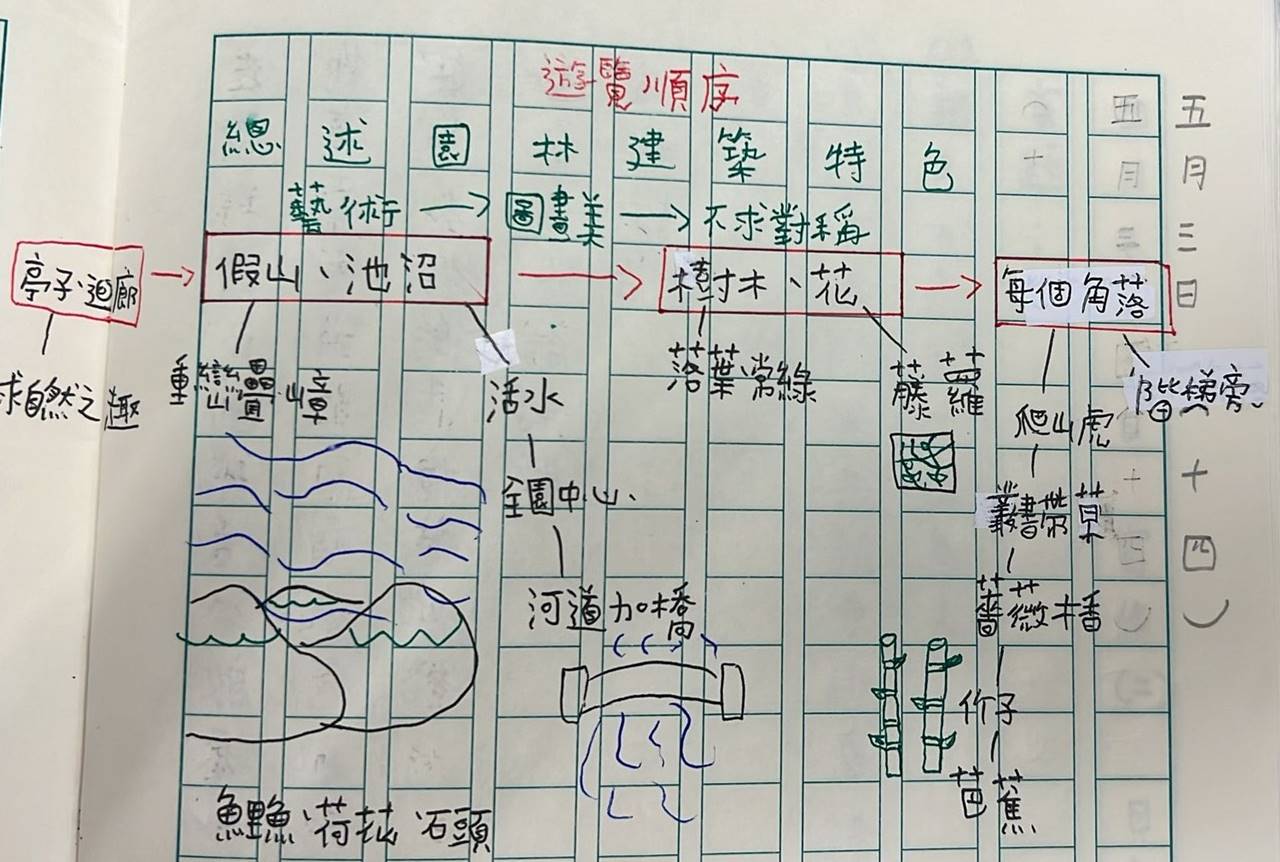 遊覽順序
總述園林建築特色
藝術→圖畫美→不求對稱
亭子、迴廊→假山、池沼→樹木、花→每個角落
求自然之趣
重巒疊嶂
活水
全園中心、
河道加橋
落葉常綠
藤蘿
階梯旁、
爬山虎
叢書帶草
薔薇牆
竹子
芭蕉
鯉魚、荷花、石頭
五月三日(十四)